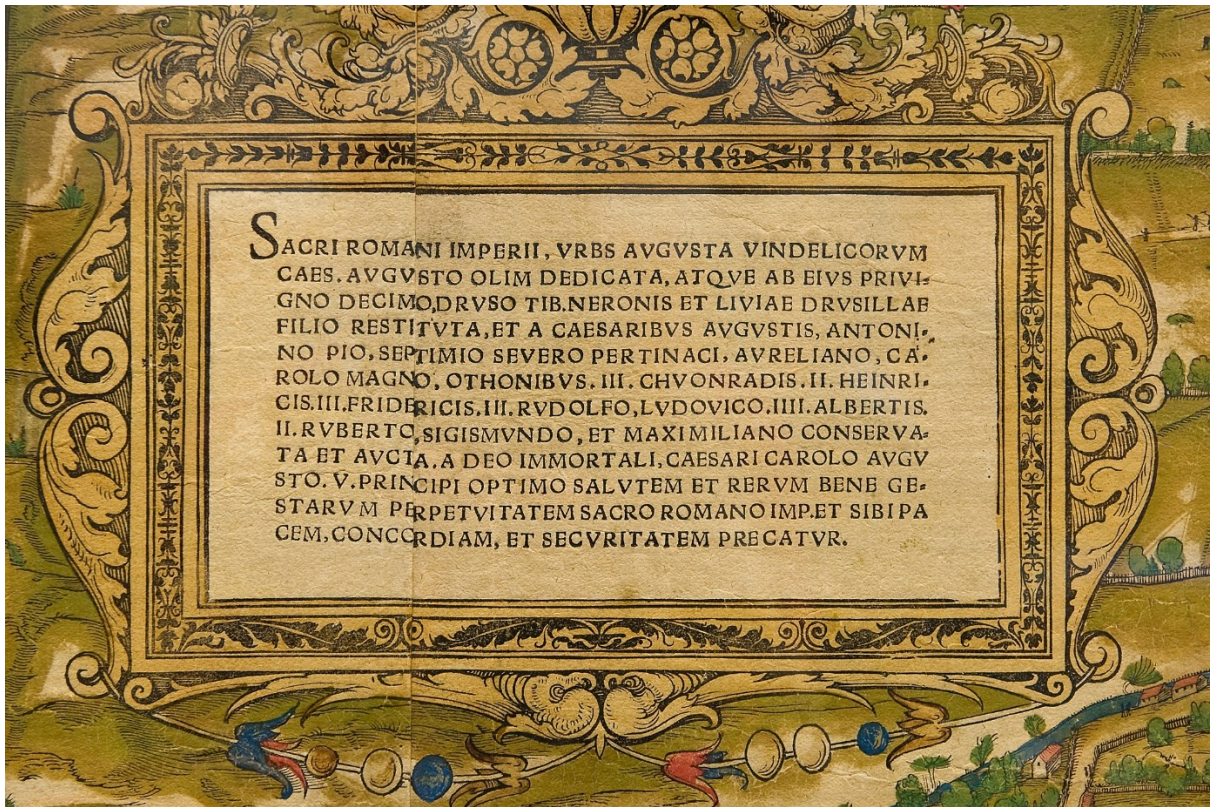 SACRI ROMANI IMPERII, VRBS AVGVSTA VINDELICORVM
CAES. AVGVSTO OLIM DEDICATA, ATQVE AB EIVS PRIVI=
GNO DECIMO, DRVSO TIB. NERONIS ET LIVIAE DRVSILLAE
FILIO RESTITVTA, ET A CAESARIBVS AVGVSTIS, ANTONI=
NO PIO, SEPTIMIO SEVERO PERTINACI, AVRELIANO, CA=
ROLO MAGNO, OTHONIBVS. III. CHVONRADIS. II. HEINRI=
CIS. III. FRIDERICIS. III. RVDOLFO, LVDOVICO. IIII. ALBERTIS.
II. RVBERTO, SIGISMVNDO, ET MAXIMILIANO CONSERVA=
TA ET AVCTA. A DEO IMMORTALI, CAESARI CAROLO AVGV
STO. V. PRINCIPI OPTIMO SALVTEM ET RERVM BENE GE=
STARVM PERPETVITATEM SACRO ROMANO IMP. ET SIBI PA
CEM, CONCORDIAM, ET SECVRITATEM PRECATVR.